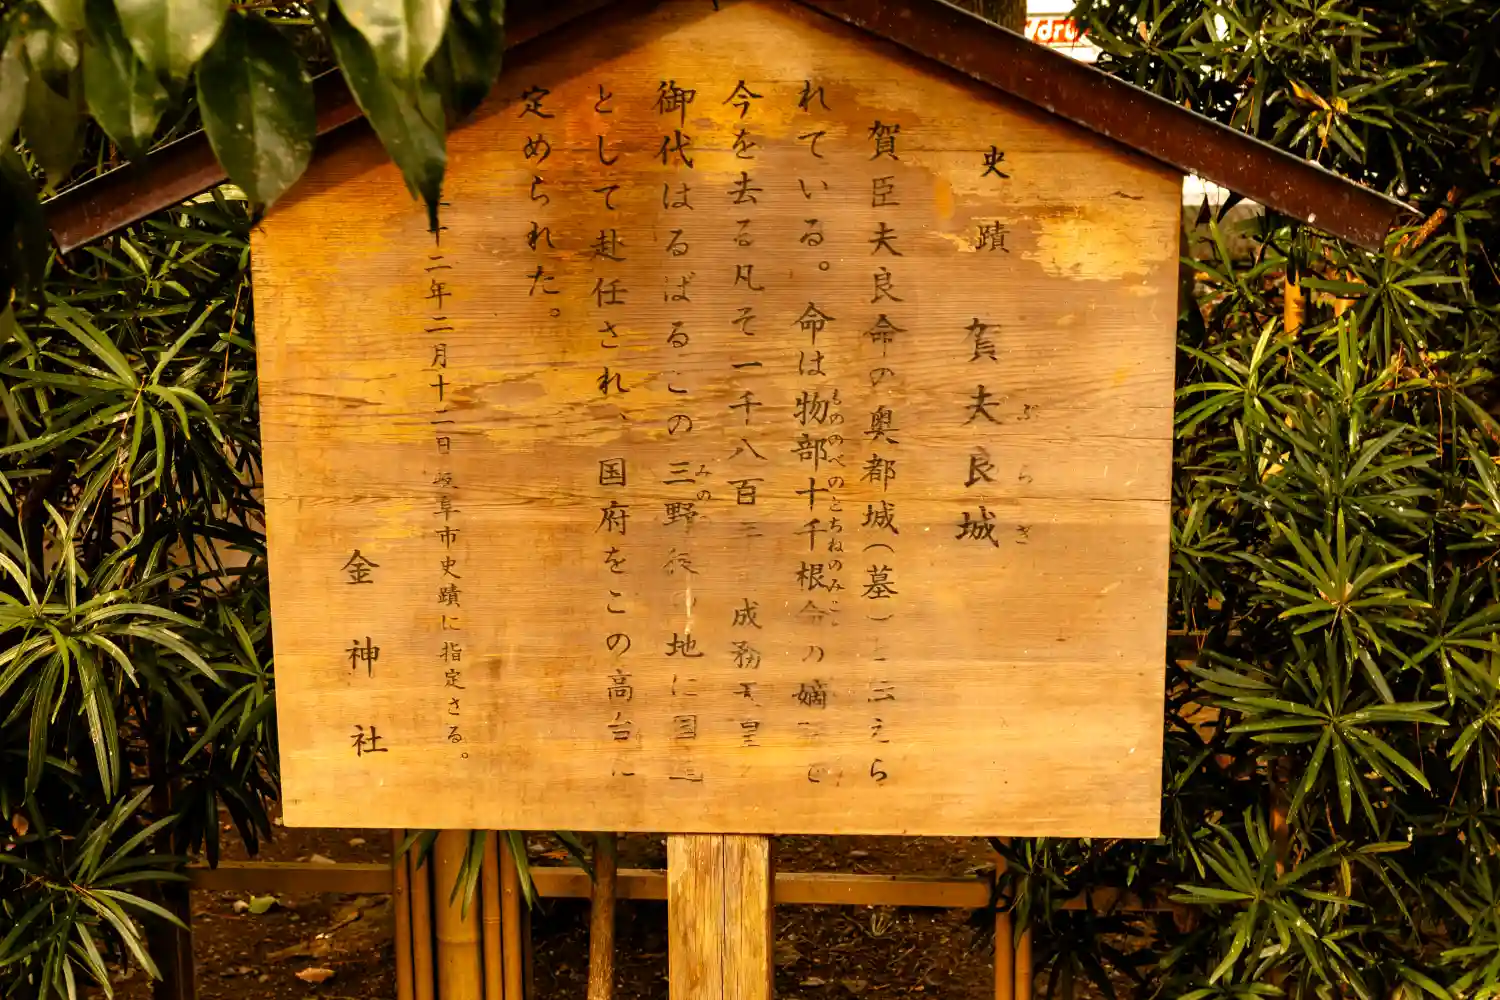 史蹟 賀夫良城
ぶらぎ
賀臣夫良命の奥都城(墓)と伝えら
れている。命は物部十千根命の嫡
もののべのとちねのみこ
今を去る凡そ一千八百三 成務天皇
御代はるばるこの三野後 地に国造
みの
として赴任され、国府をこの高台に
定められた。
十二年二月十二日 岐阜市史蹟に指定さる。
金神社